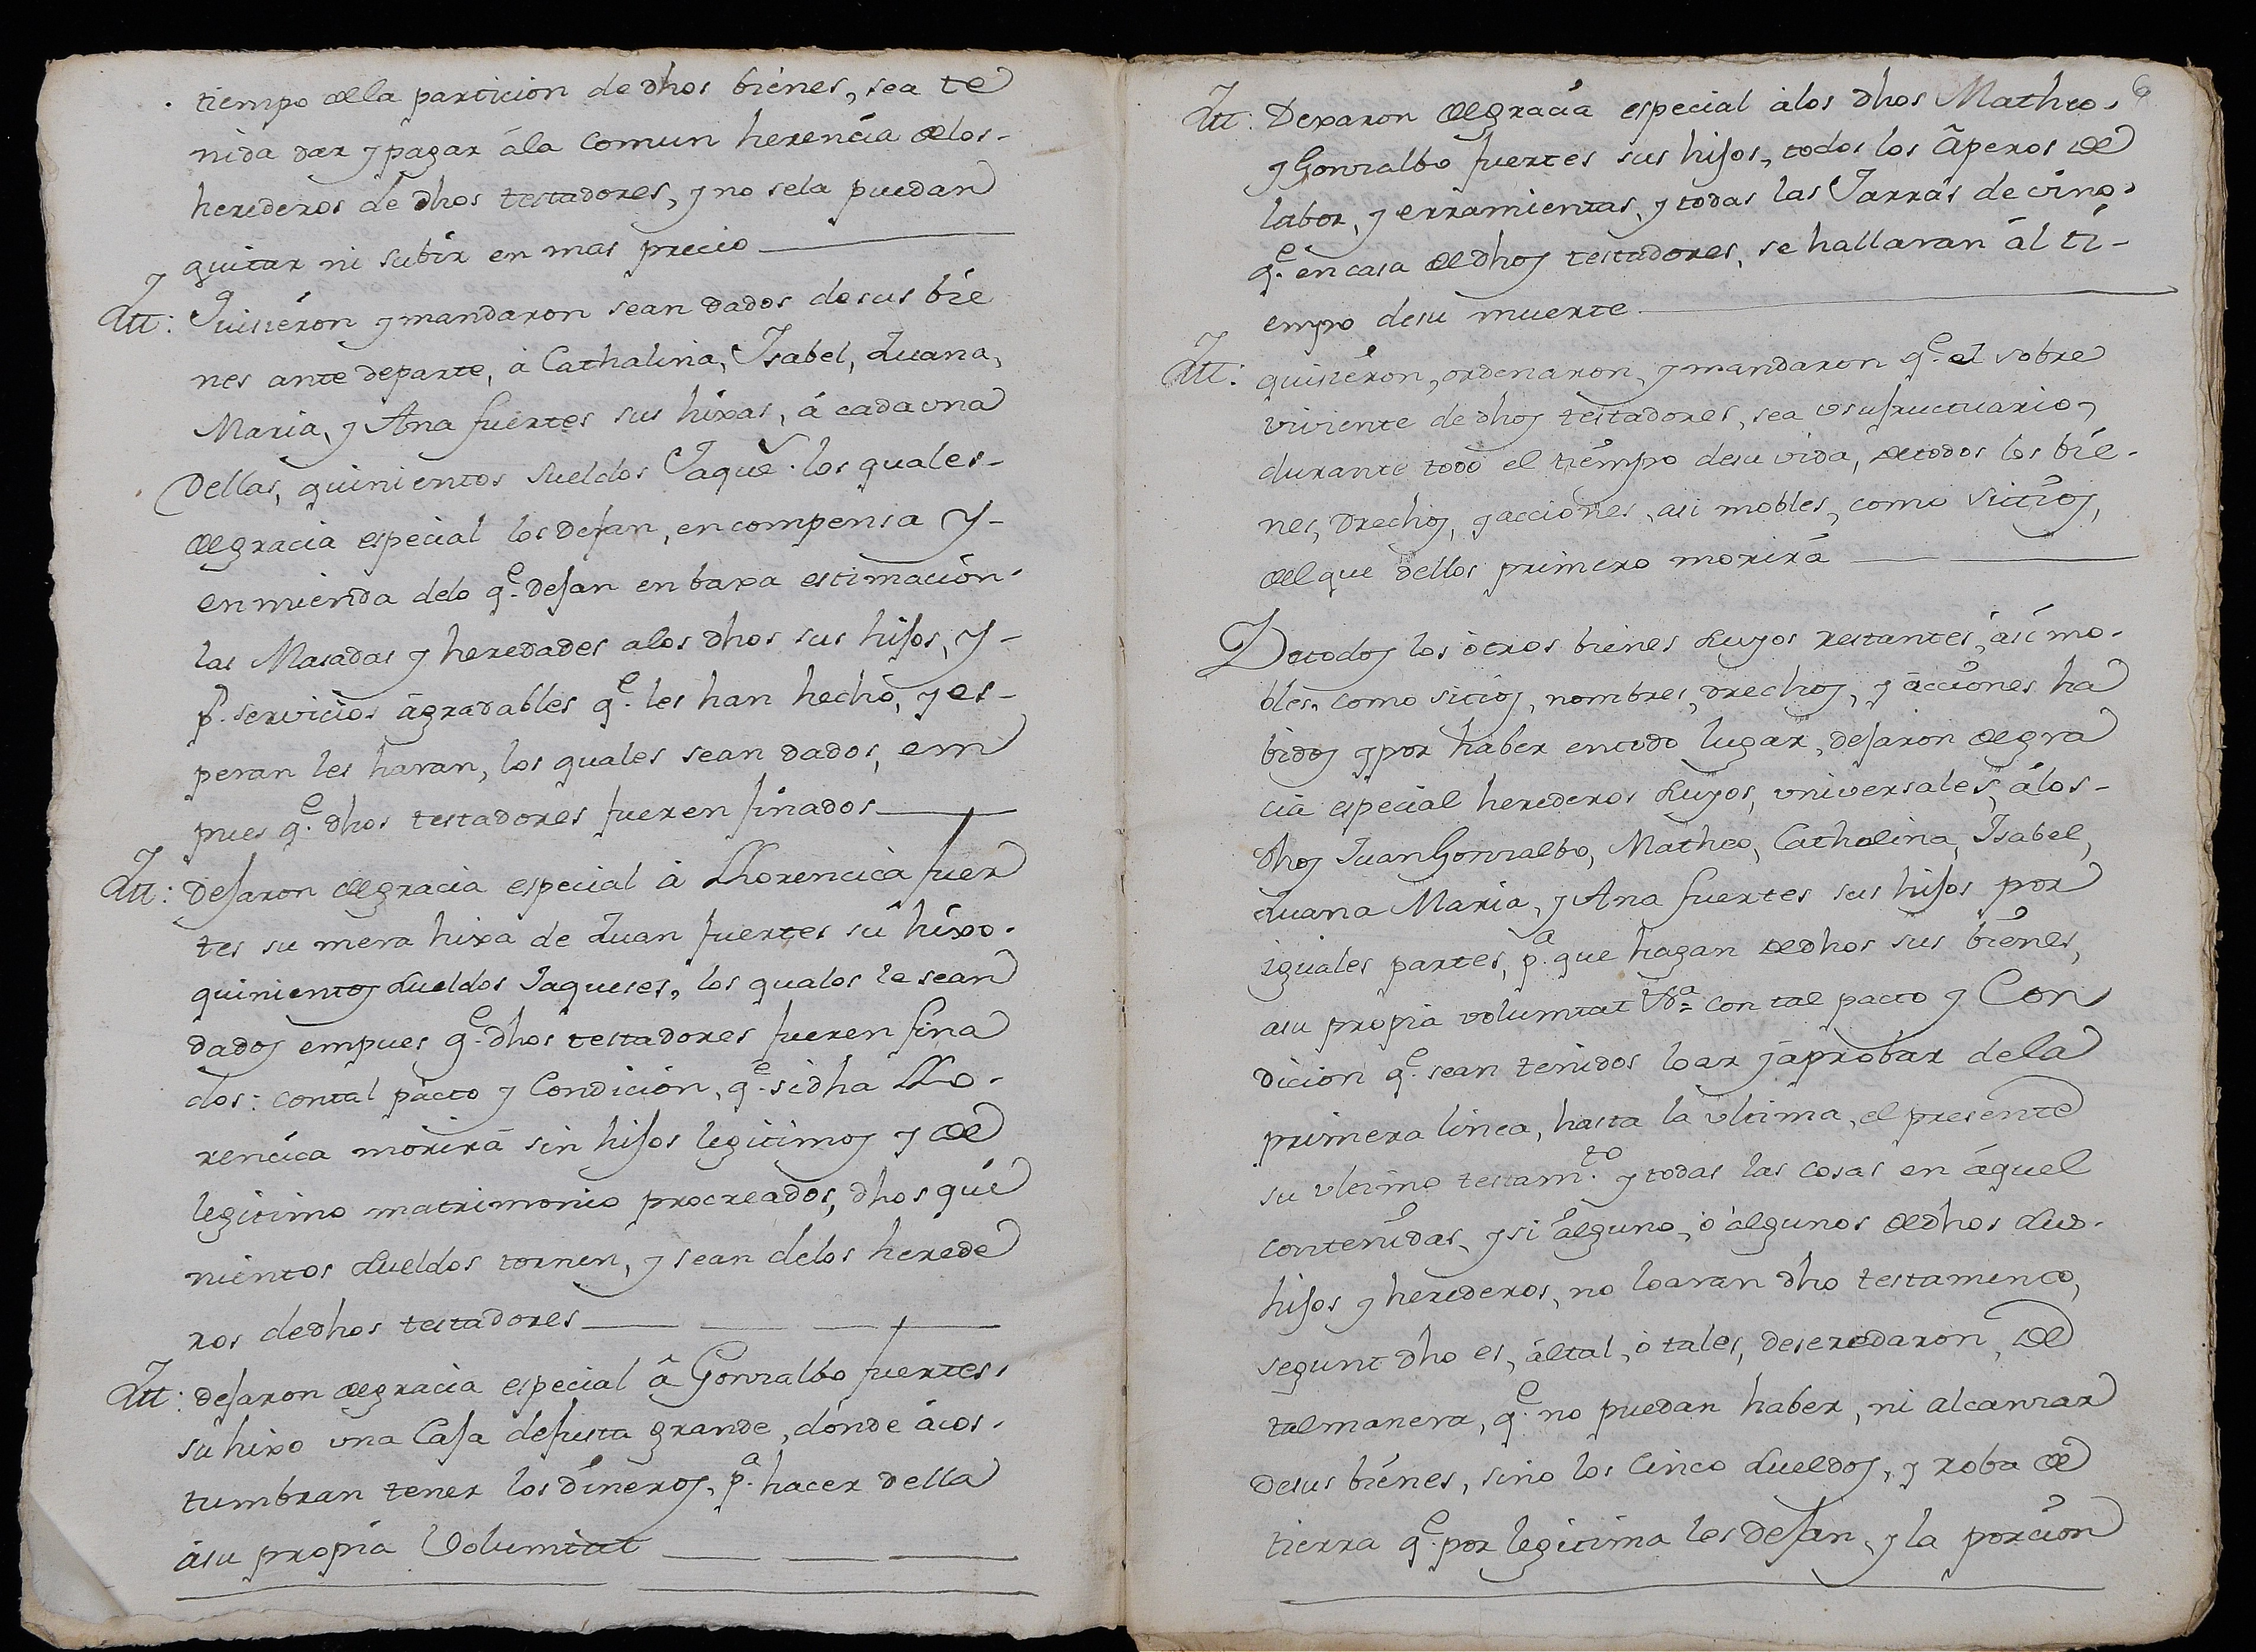 tiempo de la particion de dhos bienes, sea te
nida dar y pagar á la comun herencia de los-
herederos de dhos testadores, y no sela puedan
quitar ni subir en mas precio
Itt: Quisieron y mandaron sean dados de sus bie
nes ante departe, á Cathalina, Isabel, Juana,
Maria, y Ana fuertes sus hixas, á cada una
Dellas, quinientos sueldos Jaque.s los quales-
de gracia especial los dejan, en compensa y-
enmienda delo q.e dejan en baxa estimacion.
las Masadas y heredades a los dhos sus hijos, y-
p.r servicios ágradables q.e les han hecho, y es-
peran les haran, los quales sean dados, em
pues q.e dhos testadores fueren finados
Itt: dejaron de gracia especial á Llorencica fuer
tes su mera hixa de Juan fuertes su hixo.
quinientos sueldos Jaqueses, los quales le sean
dados empues q.e dhos testadores fueren fina
dos: con tal pacto y Condición, q.e si dha Llo-
rencica morirá sin hijos legitimos y de
legitimo matrimonio procreados, dhos qui
nientos sueldos tornen, y sean delos herede
ros de dhos testadores
Itt: dejaron de gracia especial â Gonzalbo fuertes
su hixo una Casa defusta grande, donde ácos-
tumbran tener los dineros, p.a hacer della
ásu propia Volumtat
6
Itt: Dexaron de gracia especial álos dhos Matheo.
y Gonzalbo fuertes sus hijos, todos los âperos de
labor, y erramientas, y todas las Jarrás de vino.
q.e en casa de dhos testadores, se hallaran ál ti-
empo desu muerte
Itt: quisieron, ordenaron, y mandaron q.e el sobre
viviente de dhos testadores, sea usufructuario,
durante todo el tiempo desu vida, de todos los bie-
nes, drechos, y acciones, asi mobles, como sitios,
del que dellos primero morirá
De todos los ótros bienes suyos restantes, ási mo-
bles, como sitios, nombres, drechos, y ácciones ha
bidos y por haber en todo lugar, dejaron de gra
cia especial herederos suyos, universales, álos-
dhos Juan Gonzalbo, Matheo, Cathalina, Isabel,
Juana Maria, y Ana fuertes sus hijos por
iguales partes, p.a que hagan de dhos sus bienes,
asu propia volumtat con tal pacto y Con
dicion q.e sean tenidos loar y áprobar de la
primera linea, hasta la ultima, el presente
su ultimo testam.to y todas las cosas en áquel
contenidas, y si álguno, ó álgunos de dhos sus.
hijos y herederos, no loaran dho testamento,
segunt dho es, által, ó tales, deseredaron, de
tal manera, q.e no puedan haber, ni alcanzar
desus bienes, sino los Cinco sueldos, y roba de
tierra q.e por legitima les dejan, y la porcion